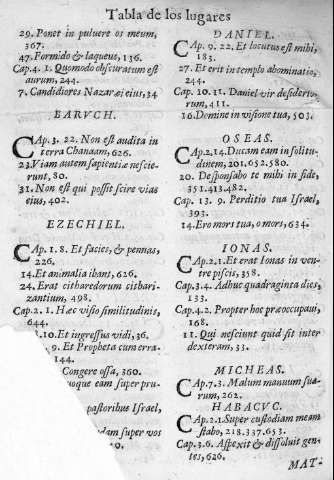 Tabla de los lugares
29. Ponet in puluere os meum,
367.
47. Formido & laqueus, 136.
Cap. 4. 1. Quomodo obscuratum est
aurum, 244.
7. Candidiores Nazaræi eius, 34
BARVCH.
CAp. 3. 22. Non est audita in
terra Chanaam, 626.
23. Viam autem sapientiæ nescie-
runt, 80.
31. Non est qui possit scire vias
eius, 402.
EZECHIEL.
CAp. 1. 8. Et facies, & pennas,
226.
14. Et animalia ibant, 626.
24. Erat citharedorum cithari-
zantium, 498.
Cap. 2. 1. Hæc visio similitudinis,
644.
8.10. Et ingressus vidi, 36.
9. Et Propheta cum erra-
144.
Congere ossa, 360.
uoque eam super pru-
pastoribus Israel,
ndam super vos
DANIEL.
CAp. 9. 22. Et locutus est mihi,
183.
27. Et erit in templo abominatio,
244.
Cap. 10. 11. Daniel vir desiderio-
rum, 411.
16. Domine in visione tua, 503.
OSEAS.
CAp. 2. 14. Ducam eam in solitu-
dinem, 201. 652. 580.
20. Desponsabo te mihi in fide,
351. 413. 482.
Cap. 13. 9. Perditio tua Israel,
393.
14. Ero mors tua, o mors, 634.
IONAS.
CAp. 2. 1. Et erat Ionas in ven-
tre piscis, 358.
Cap. 3. 4. Adhuc quadraginta dies,
133.
Cap. 4. 2. Propter hoc præoccupaui,
168.
11. Qui nesciunt quid sit inter
dexteram, 33.
MICHEAS.
CAp. 7. 3. Malum manuum sua-
rum, 262.
HABACVC.
CAp. 2. 1. Super custodiam meam
stabo, 218. 337. 653.
Cap. 3. 6. Aspexit & dissoluit gen-
tes, 626.
MAT-